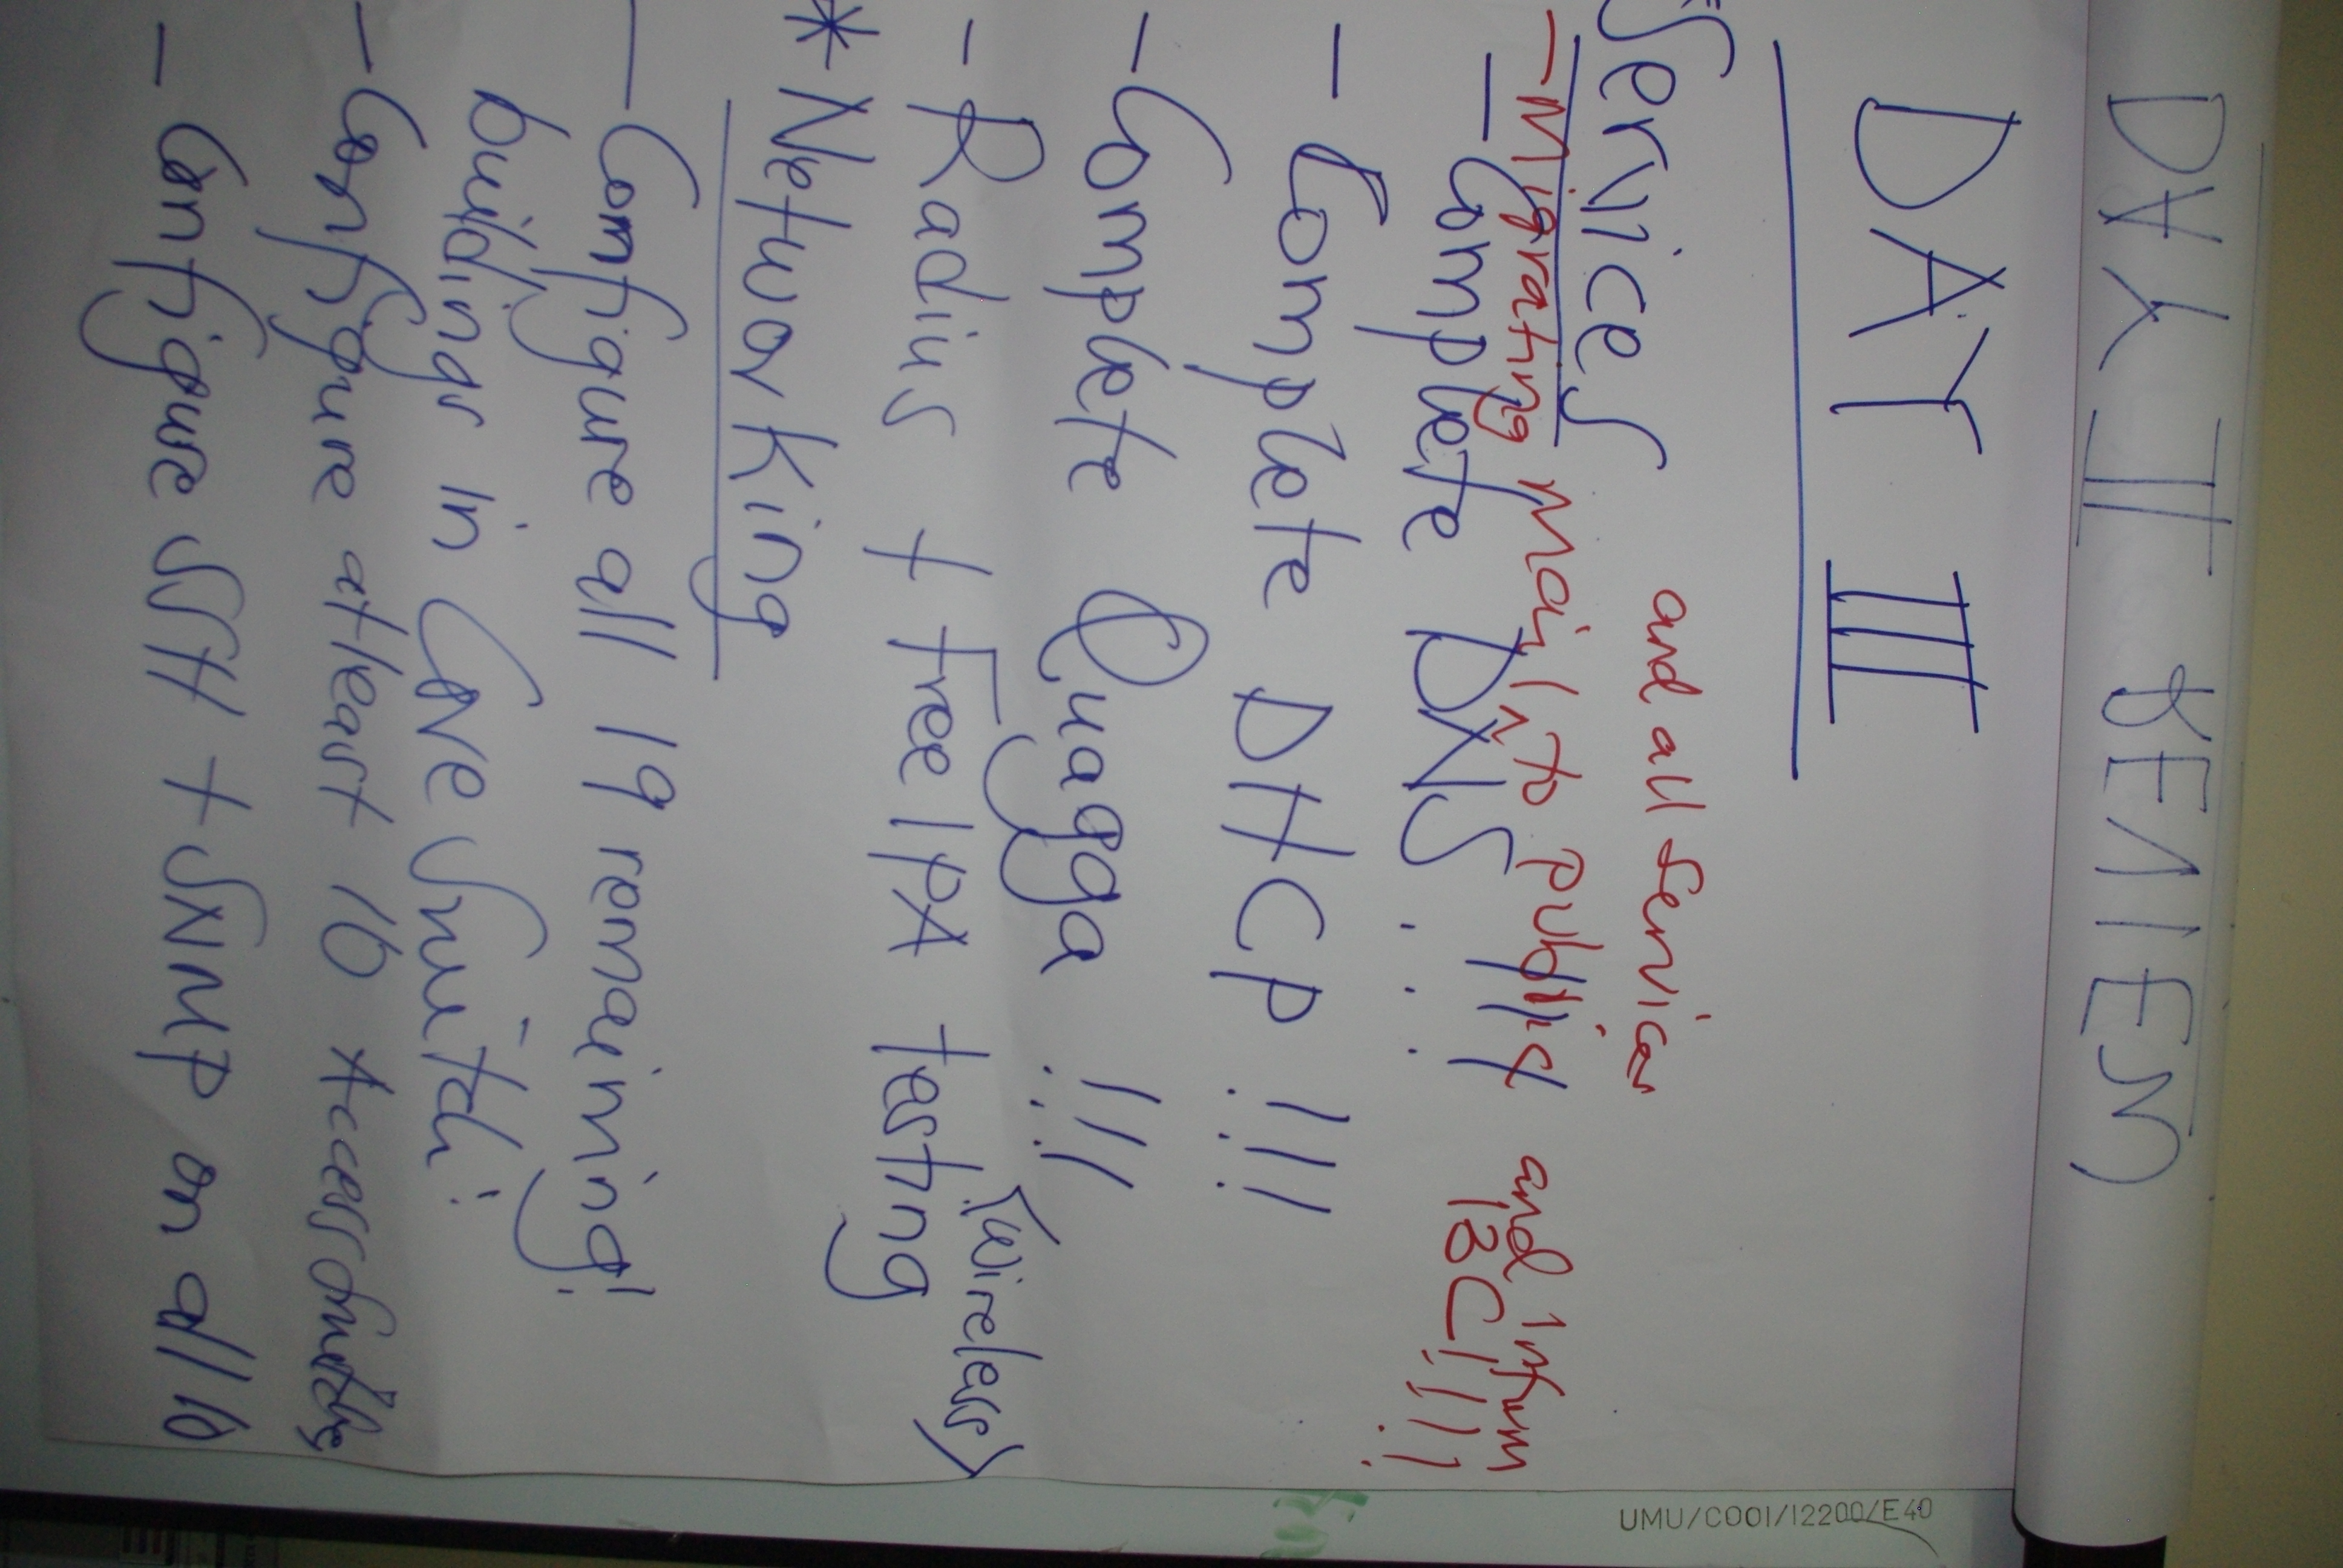 DAY III
and all Services
Services
- Migrating mail to public and infum
IBCI !!!
- Complete DNS !!!
- Complete DHCP !!!
- Complete Quagga !!!
- Radius + FreeIPA testing (wireless)
* Networking
- Configure all 19 remaining
buildings in Core Switch.
- Configure atleast 10 Access Switches
- Configure SSH + SNMP on all 10
UMU/COO1/12200/E40